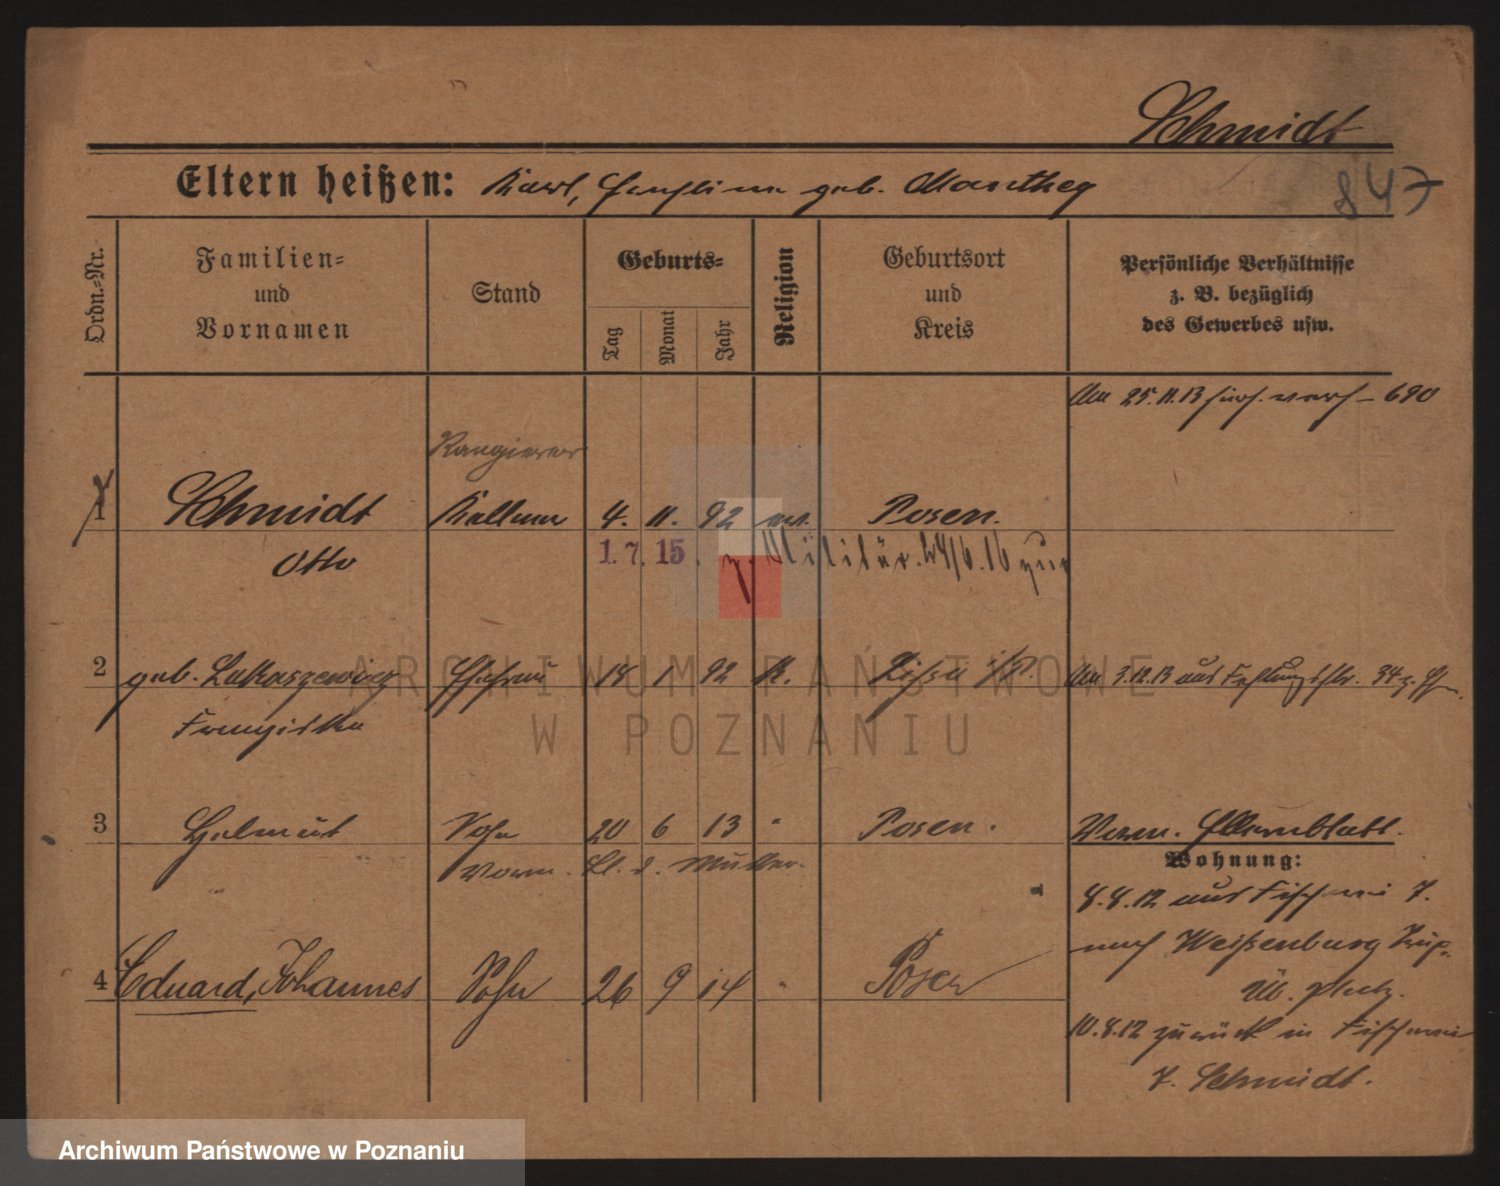 Schmidt
Eltern heißen: Karl, Pauline geb. Manthey
847
Ordn.-Nr.
Familien-
und
Vornamen
Stand
Geburts-
Tag
Monat
Jahr
Religion
Geburtsort
und
Kreis
Persönliche Verhältnisse
z. B. bezüglich
des Gewerbes usw.
Am 25.11.13 690
Rangierer
1 Schmidt Kellner 4. 11. 92 ev. Posen.
Otto
1. 7. 15. z. Militär. 24/6.16 zur
2 geb. Lukaszewicz Ehefrau 18 1 92 k. Lissa i/P. Am 3.12.13 aus 34
Franziska
3 Helmut Sohn 20 6 13 " Posen. Vorm. Elternblatt.
Vorm. Bl. d. Mutter.
Wohnung:
8.8.12 aus Fischerei 7.
nach Weißenburg Trup.
Üb. platz.
4 Eduard, Johannes Sohn 26 9 14 " Posen
10.8.12 zurück in Fischerei
7. Schmidt.
ARCHIWUM PAŃSTWOWE
W POZNANIU
Archiwum Państwowe w Poznaniu